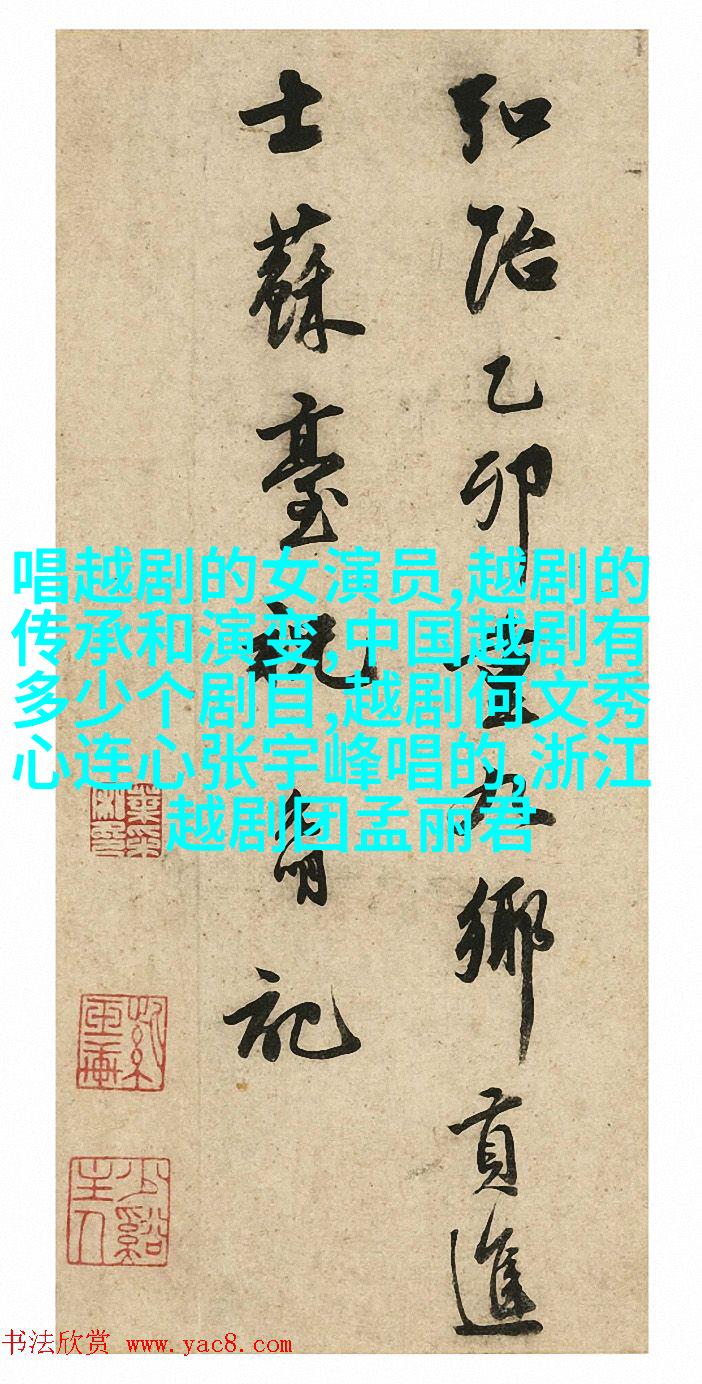 弘治乙卯豐城鄉貢進
士蘇臺祝允明記
唱越剧的女演员,越剧的
传承和演变,中国越剧有
多少个剧目,越剧何文秀
心连心张宇峰唱的,浙江
越剧团孟丽君
少谿
主人
书法欣赏 www.yac8.com